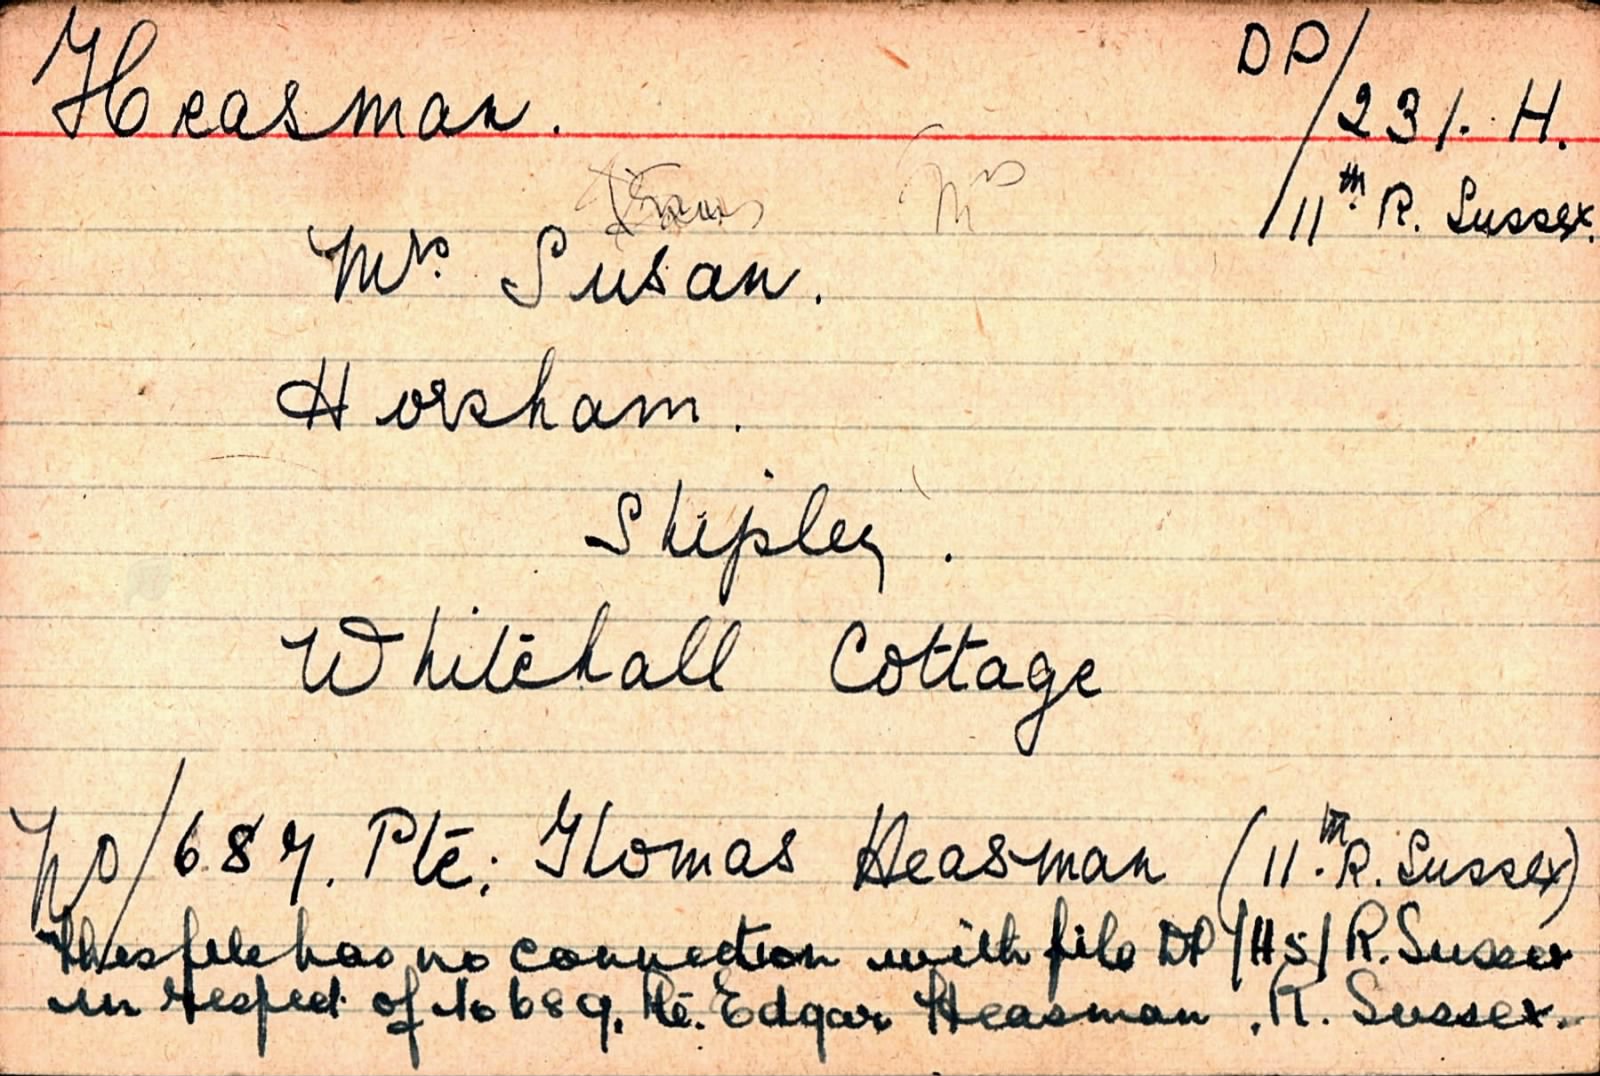 Heasman.
DP/231. H.
11th R. Sussex.
Mrs
Mrs. Susan.
Horsham.
Shipley.
Whitehall Cottage
No/687. Pte: Thomas Heasman (11th R. Sussex)
This file has no connection with file DP/H5/R. Sussex
in respect of No 689. Pte. Edgar Heasman, R. Sussex.